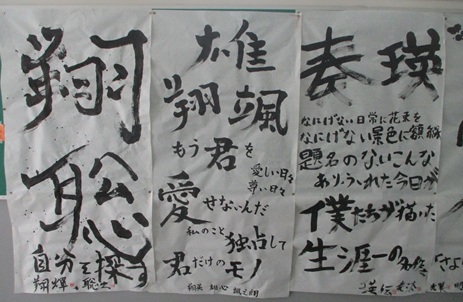 翔
聡
自分を探す
翔輝 聡士
雄
翔颯
もう君を
愛しい日々
尊い日々
愛せないんだ
私のこと
独占して
君だけのモノ
春瑛
なにげない日常に花束を
なにげない景色に額縁
題名のないこんな
ありふれた今日が
僕たちが描いた
生涯一の